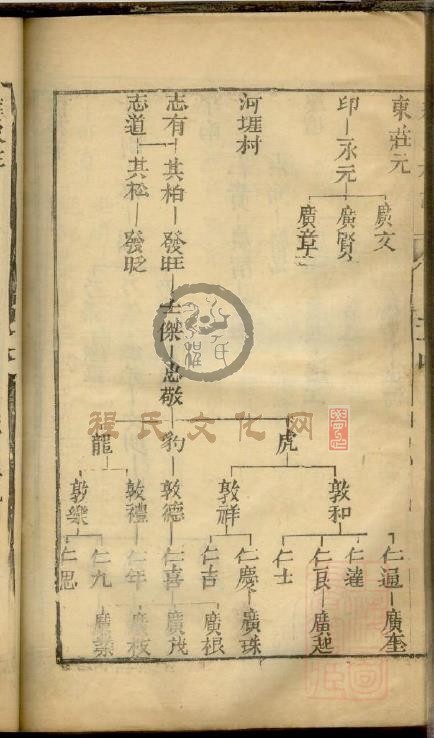 東莊元
印 永元
廣文
廣賢
廣章
河堐村
志有 其柏 發旺 士傑 忠敬
志道 其松 發眨
虎
豹
龍
敦和
敦祥
敦德
敦禮
敦樂
仁逼 廣奎
仁達
仁良 廣起
仁士
仁慶 廣珠
仁吉 廣根
仁喜 廣茂
仁年 廣枝
仁九 廣業
仁思
程氏文化网